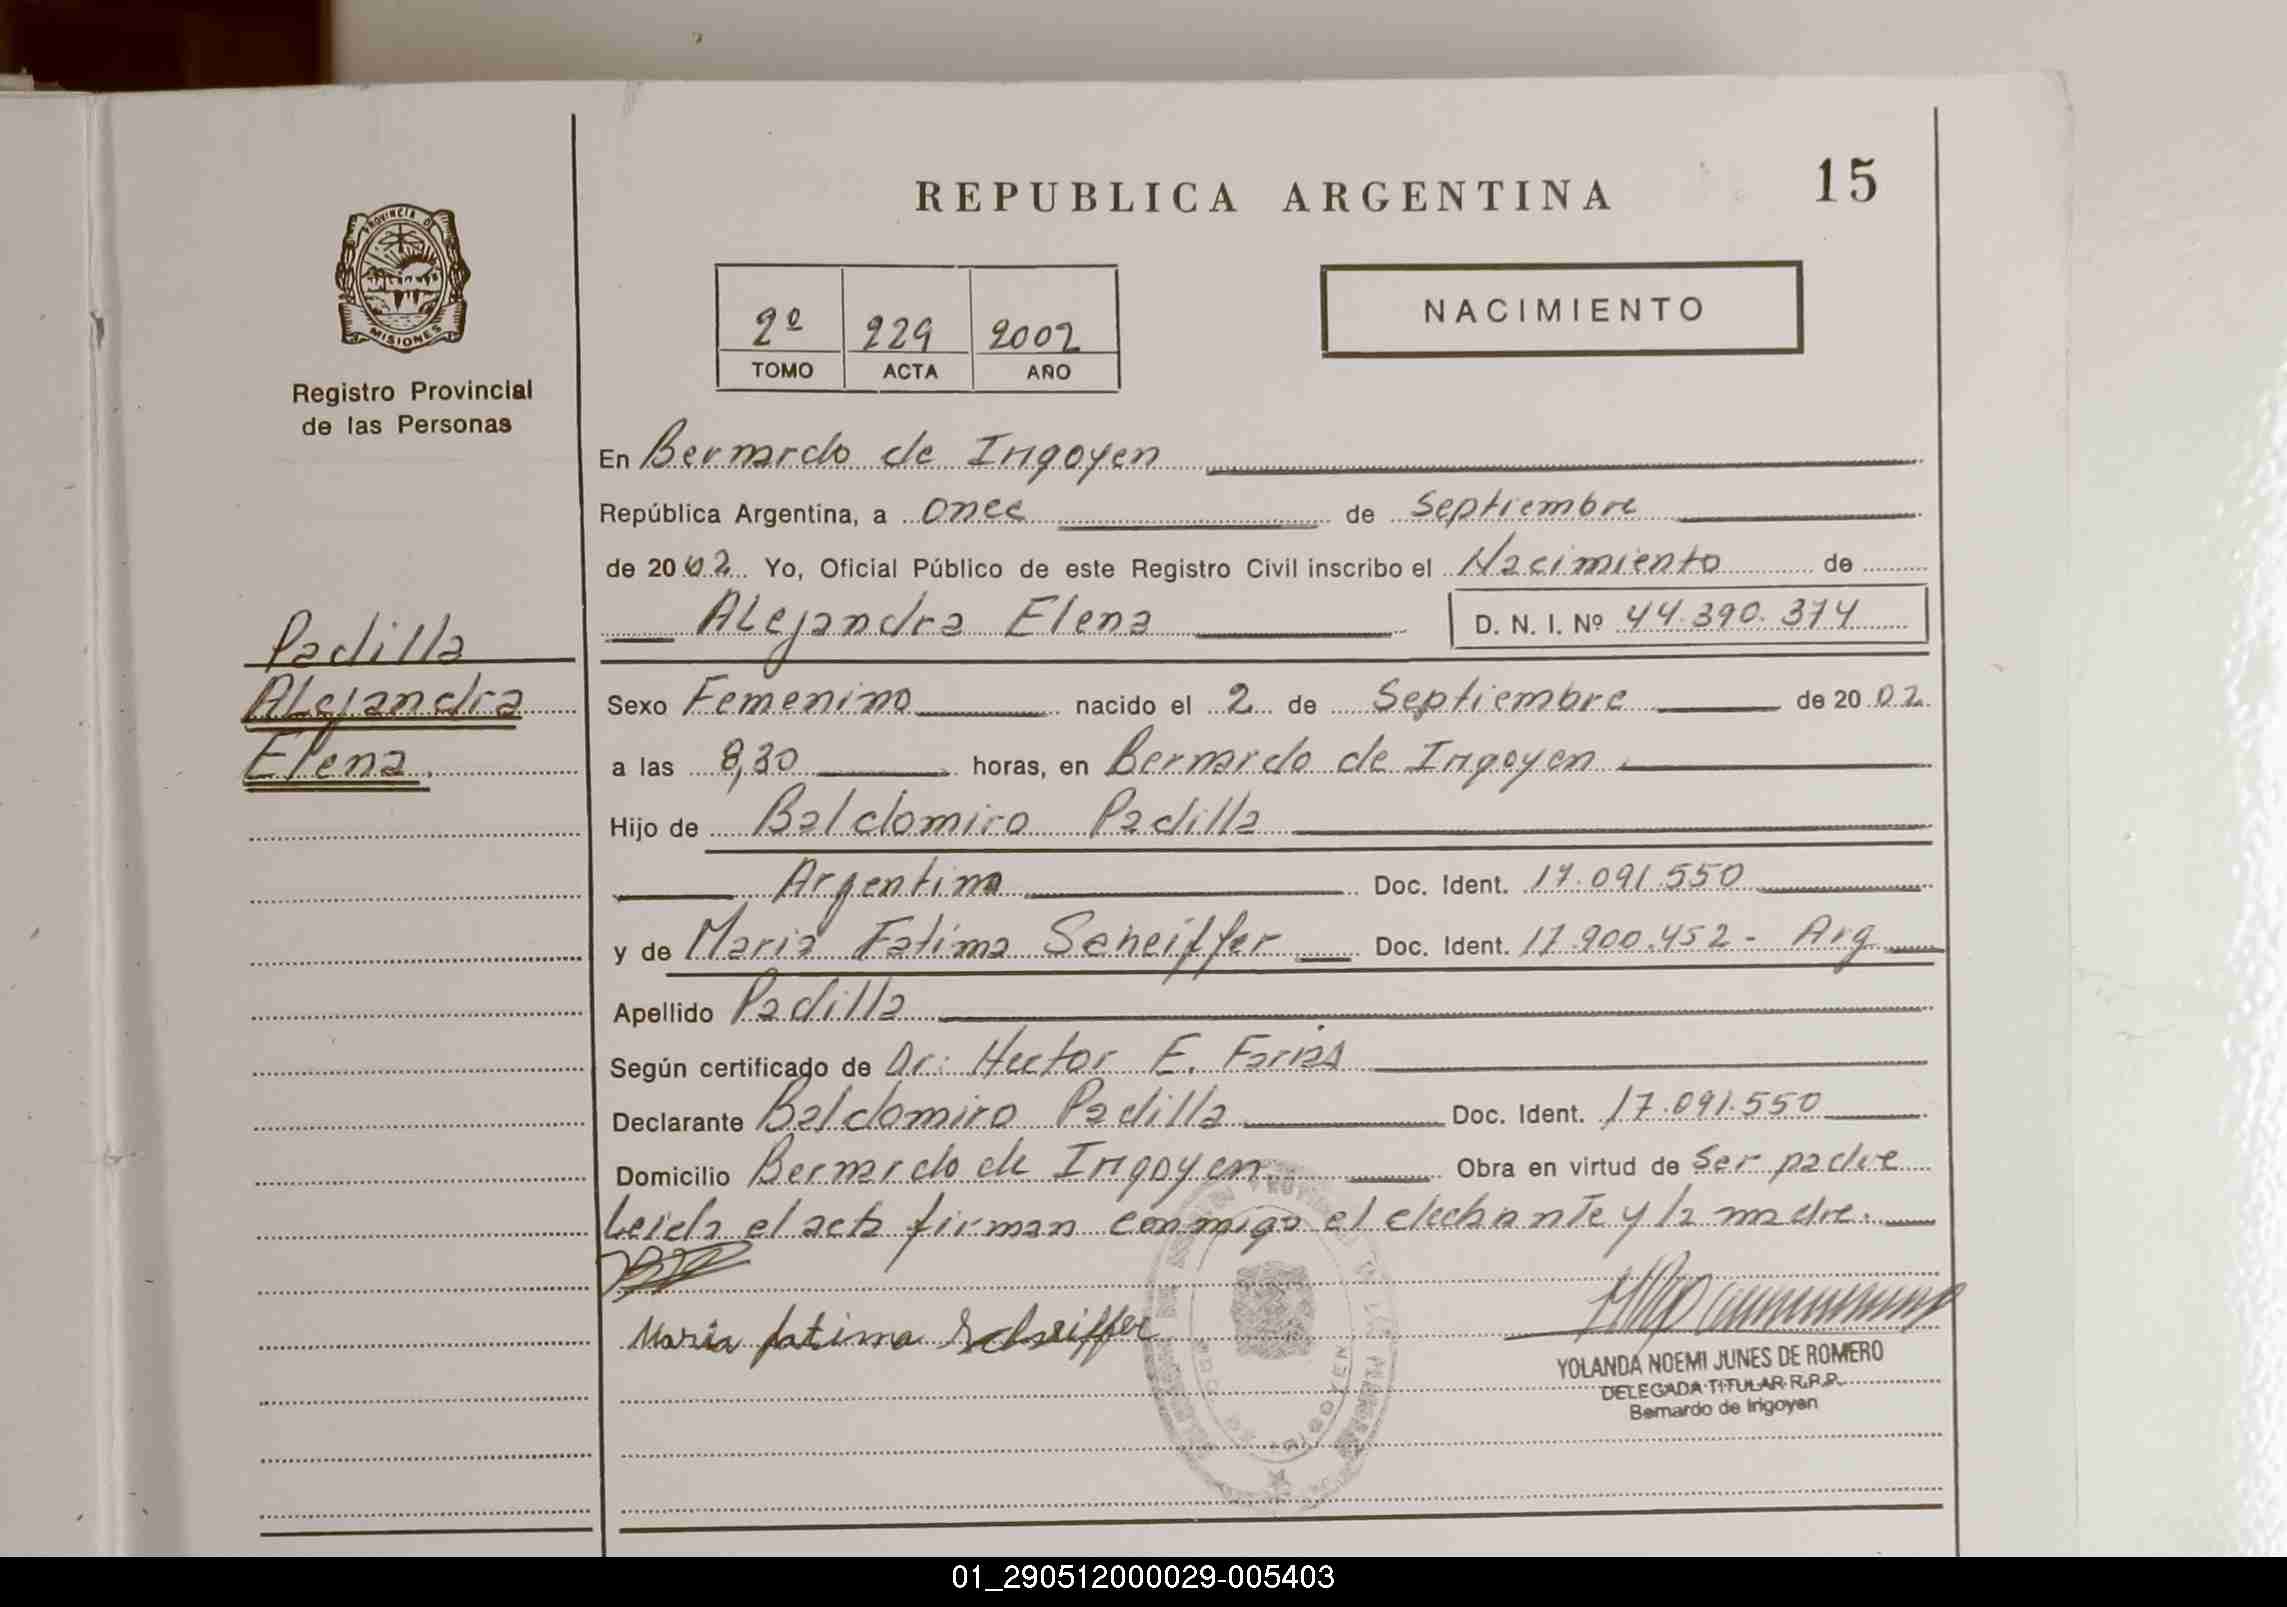 REPUBLICA ARGENTINA
15
PROVINCIA DE
MISIONES
Registro Provincial
de las Personas
2º 229 2002
TOMO ACTA AÑO
NACIMIENTO
En Bernardo de Irigoyen
República Argentina, a once de Septiembre
de 2002 Yo, Oficial Público de este Registro Civil inscribo el Nacimiento de
Alejandra Elena D. N. I. Nº 44.390.374
Padilla
Alejandra
Elena
Sexo Femenino nacido el 2 de Septiembre de 2002
a las 8,30 horas, en Bernardo de Irigoyen
Hijo de Baldomiro Padilla
Argentina Doc. Ident. 17.091.550
y de Maria Fatima Scheiffer Doc. Ident. 17.900.452 - Arg
Apellido Padilla
Según certificado de Dr: Hector E. Farias
Declarante Baldomiro Padilla Doc. Ident. 17.091.550
Domicilio Bernardo de Irigoyen Obra en virtud de Ser padre
Leida el acta firman conmigo el declarante y la madre.
Maria fatima Scheiffer
YOLANDA NOEMI JUNES DE ROMERO
DELEGADA TITULAR R.P.P.
Bernardo de Irigoyen
01_290512000029-005403